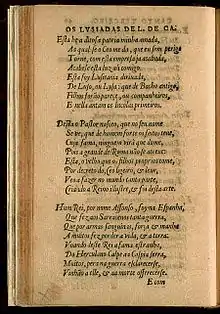 OS LVSIADAS DE L. DE CA.
Esta he a ditosa patria minha amada,
Aa qual se o Ceo me dà, que eu sem perigo
Torne, com esta empresa ja acabada,
Acabese esta luz ali comigo.
Esta foy Lusitania diriuada,
De Luso, ou Lysa: que de Bacho antigo,
Filhos forão parece, ou companheiros,
E nella antam os incolas primeiros.
Desta o Pastor nasceo, que no seu nome
Se ve, que de homem forte os feitos teue,
Cuja fama, ninguem virà que dome,
Pois a grande de Roma não se atreue:
Esta, o velho que os filhos proprios come,
Por decreto do Ceo ligeiro, & leue,
Veo a fazer no mundo tanta parte,
Criando a Reino illustre, & foi desta arte.
Hum Rei, por nome Affonso, foy na Espanha,
Que fez aos Sarracenos tanta guerra,
Que por armas sanguinas, força & manha
A muitos fez perder a vida, & a terra:
Voando deste Rei a fama estranha,
Do Herculano Calpe aa Caspia serra,
Muitos, pera na guerra esclarecerse,
Vinhão a elle, & aa morte offerecerse.
E com